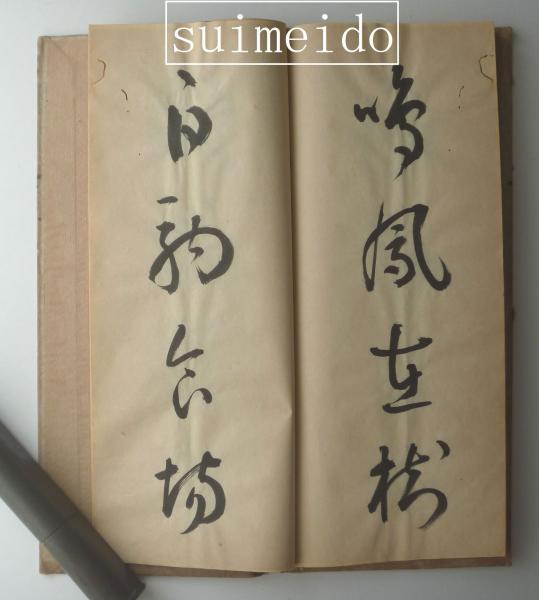 suimeido
鳴鳳在樹
白駒食場